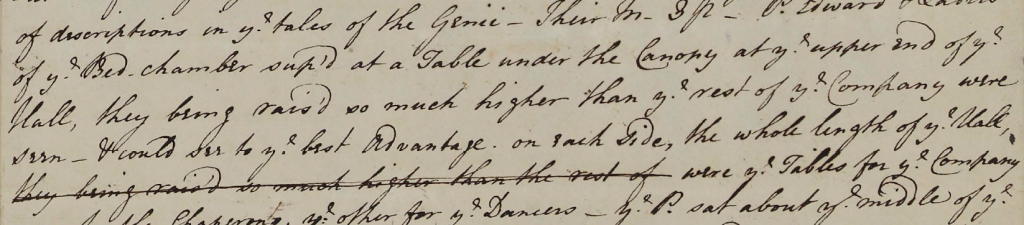 of descriptions in yᵉ tales of the Genii – Their M– & P– P. Edward
of yᵉ Bed-chamber sup'd at a Table under the Canopy at yᵉ upper End of yᵉ
Hall, they being rais'd so much higher than yᵉ rest of yᵉ Company were
seen – & could see to yᵉ best Advantage. on each Side, the whole length of yᵉ Hall,
they being rais'd so much higher than the rest of were yᵉ Tables for yᵉ Company
the Chaperons, yᵉ other for yᵉ Dancers – yᵉ P. sat about yᵉ middle of yᵉ